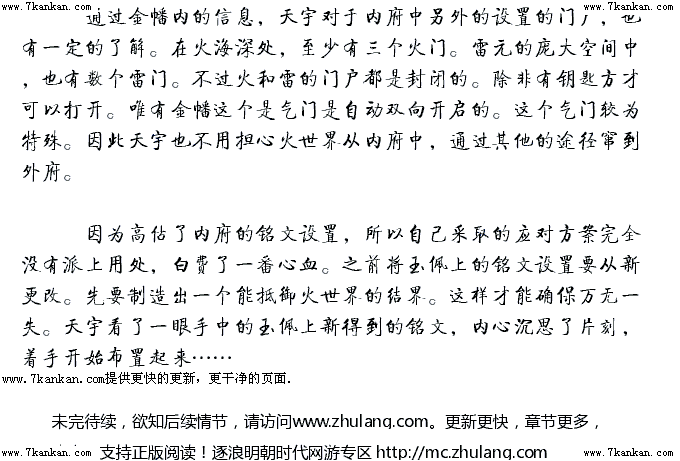 www.7kankan.com www.7kankan.com
通过金幡内的信息，天宇对于内府中另外的设置的门户，也
有一定的了解。在火海深处，至少有三个火门。雷元的庞大空间中
，也有数个雷门。不过火和雷的门户都是封闭的。除非有钥匙方才
可以打开。唯有金幡这个是气门是自动双向开启的。这个气门较为
特殊。因此天宇也不用担心火世界从内府中，通过其他的途径窜到
外府。
因为高估了内府的铭文设置，所以自己采取的应对方案完全
没有派上用处，白费了一番心血。之前将玉佩上的铭文设置要从新
更改。先要制造出一个能抵御火世界的结界。这样才能确保万无一
失。天宇看了一眼手中的玉佩上新得到的铭文，内心沉思了片刻，
着手开始布置起来……
www.7kankan.com提供更快的更新，更干净的页面.
未完待续，欲知后续情节，请访问www.zhulang.com。更新更快，章节更多，
支持正版阅读！逐浪明朝时代网游专区 http://mc.zhulang.com
www.7kankan.com www.7kankan.com